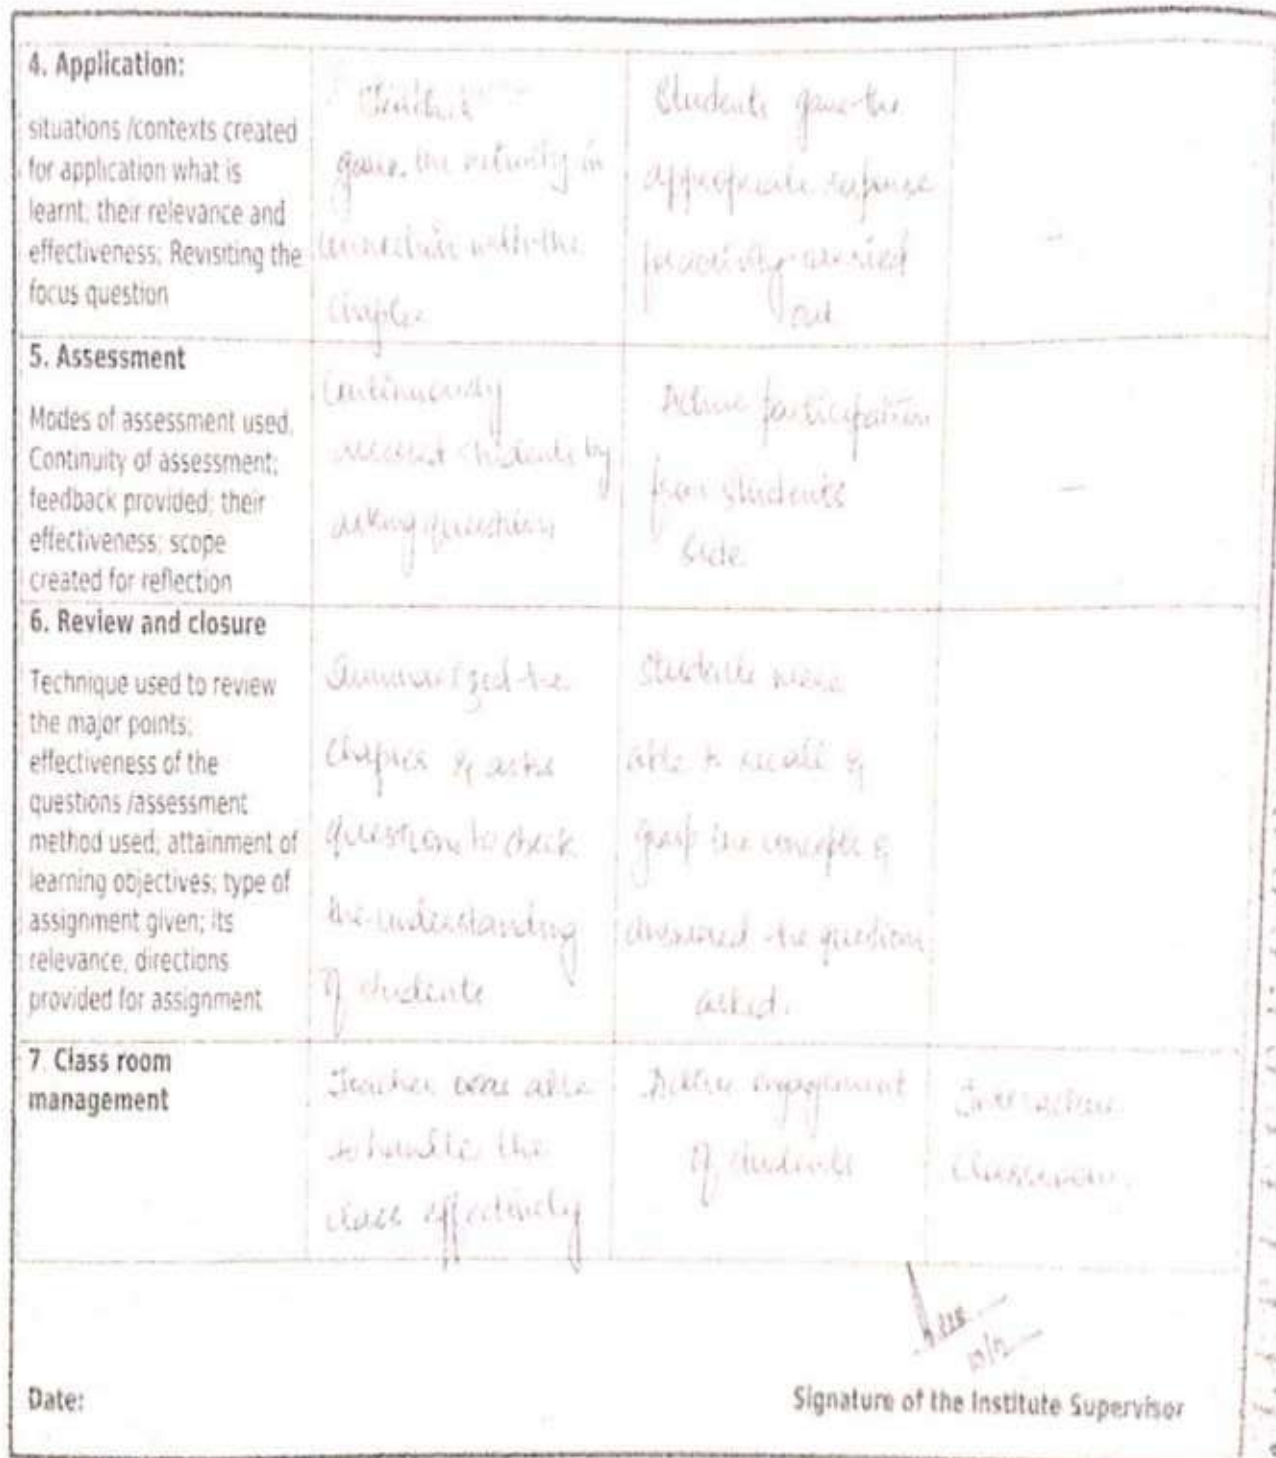 4. Application:
situations /contexts created
for application what is
learnt; their relevance and
effectiveness; Revisiting the
focus question
Teacher
gave the activity in
connection with the
chapter
Students gave the
appropriate response
for activity carried
out
-
5. Assessment
Modes of assessment used,
Continuity of assessment;
feedback provided; their
effectiveness; scope
created for reflection
Continuously
assessed students by
asking questions
Active participation
from students
side
-
6. Review and closure
Technique used to review
the major points;
effectiveness of the
questions /assessment
method used; attainment of
learning objectives; type of
assignment given; its
relevance, directions
provided for assignment
Summarized the
chapter & asks
questions to check
the understanding
of students
Students were
able to recall &
grasp the concepts &
answered the questions
asked.
7. Class room
management
Teacher were able
to handle the
class effectively
Active engagement
of students
Interactive
classroom.
Date:
Signature of the Institute Supervisor